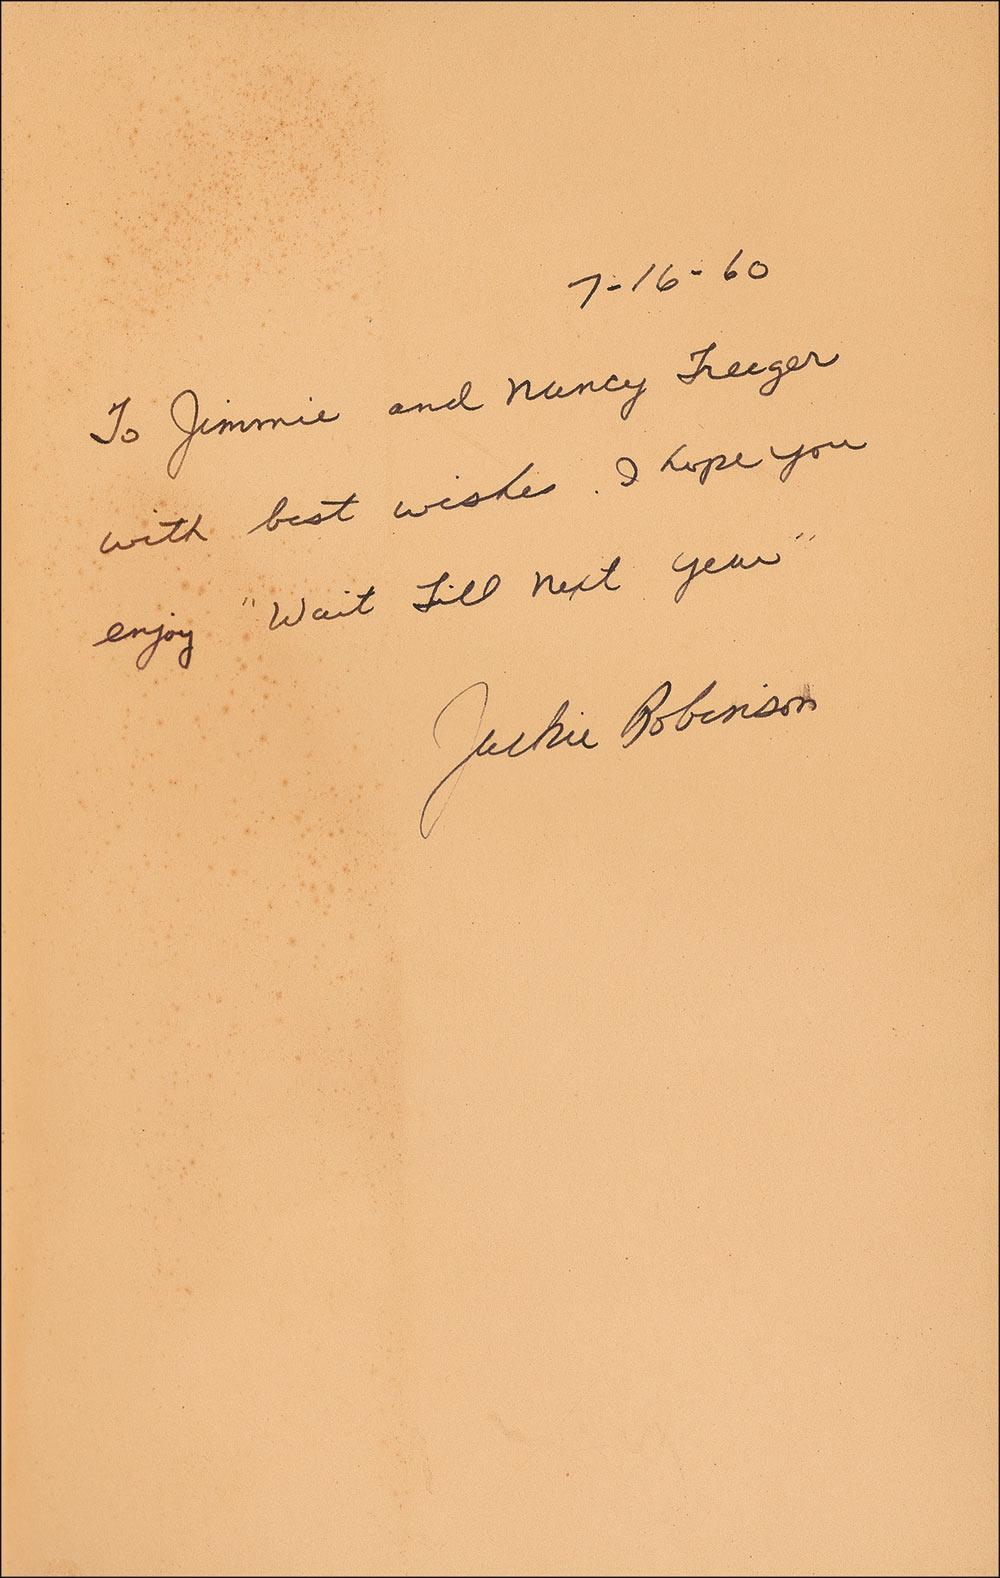 7-16-60
To Jimmie and Nancy Treeger
with best wishes. I hope you
enjoy "Wait Till Next Year"
Jackie Robinson